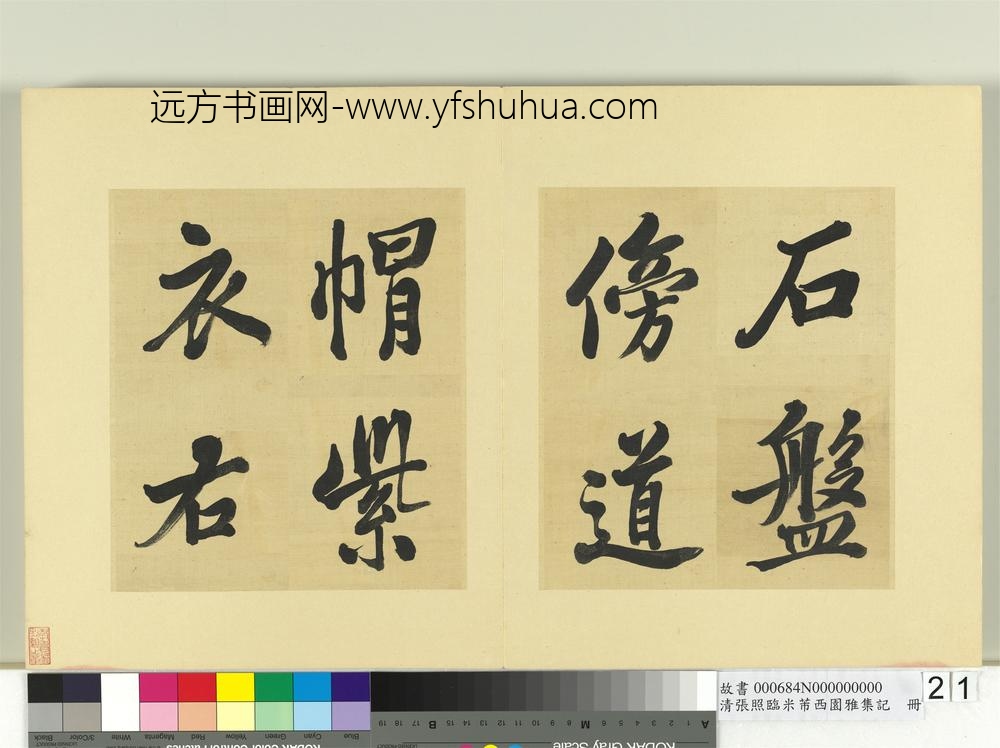 远方书画网-www.yfshuhua.com
石盤
傍道
帽紫
衣右
故書 000684N000000000
清張照臨米芾西園雅集記 冊
21
Black
3/Color
White
Magenta
Red
Yellow
Green
Cyan
Blue
KODAK Color Control Patches
KODAK Gray Scale
A 1 2 3 4 5 6 M 8 9 10 11 12 13 14 15 B 17 18 19